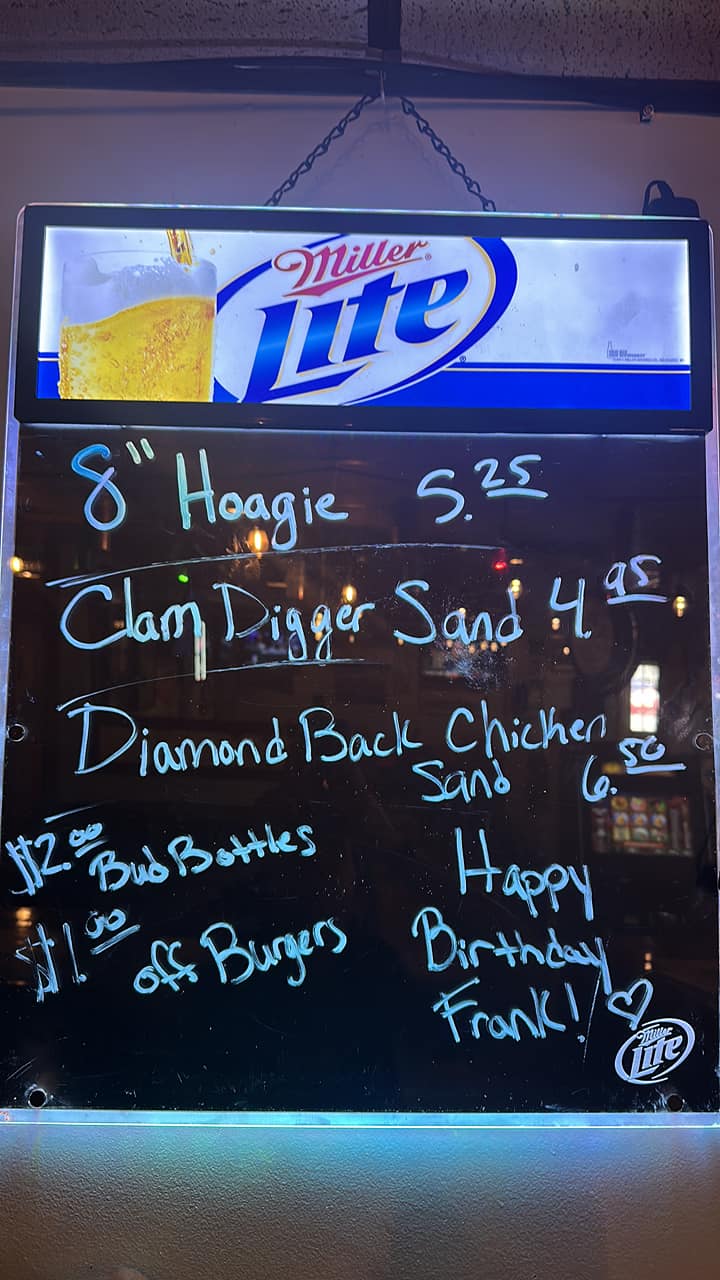 Miller
Lite
8" Hoagie 5.25
Clam Digger Sand 4.95
Diamond Back Chicken
Sand 6.50
$2.00 Bud Bottles
$1.00 off Burgers
Happy
Birthday
Frank!
Miller
Lite